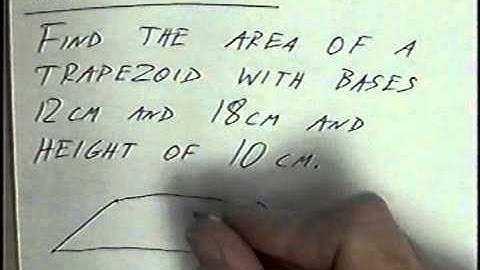 FIND THE AREA OF A
TRAPEZOID WITH BASES
12CM AND 18CM AND
HEIGHT OF 10 CM.